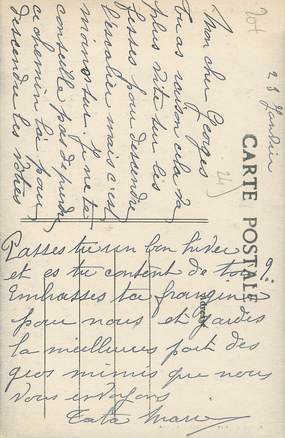 23 Janvier
Mon cher Georges
Tu as raison cela va
plus vite sur les
fesses pour descendre
l'escalier mais c'est
moins sur. Je ne te
conseille pas de prendre
ce chemin là pour
descendre les nôtres
CARTE POSTALE
Passes tu un bon hiver
et es tu content de toi ?
Embrasses ta frangine
pour nous et gardes
la meilleures part des
gros mimis que nous
vous envoyons
Tata Marie